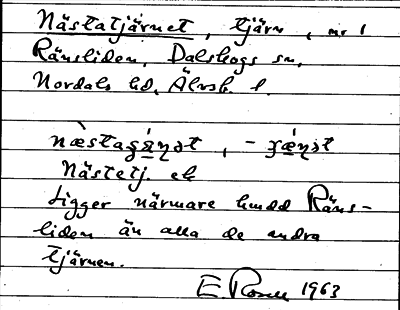 Nästatjärnet, tjärn, nr 1
Ränsliden, Dalskogs sn,
Nordals hd, Älvsb. l.
næ̀staʂǽɳət, – ʂæɳət
Nästetj. ek
Ligger närmare hmdd Räns-
liden än alla de andra
tjärnen.
E Rosell 1963